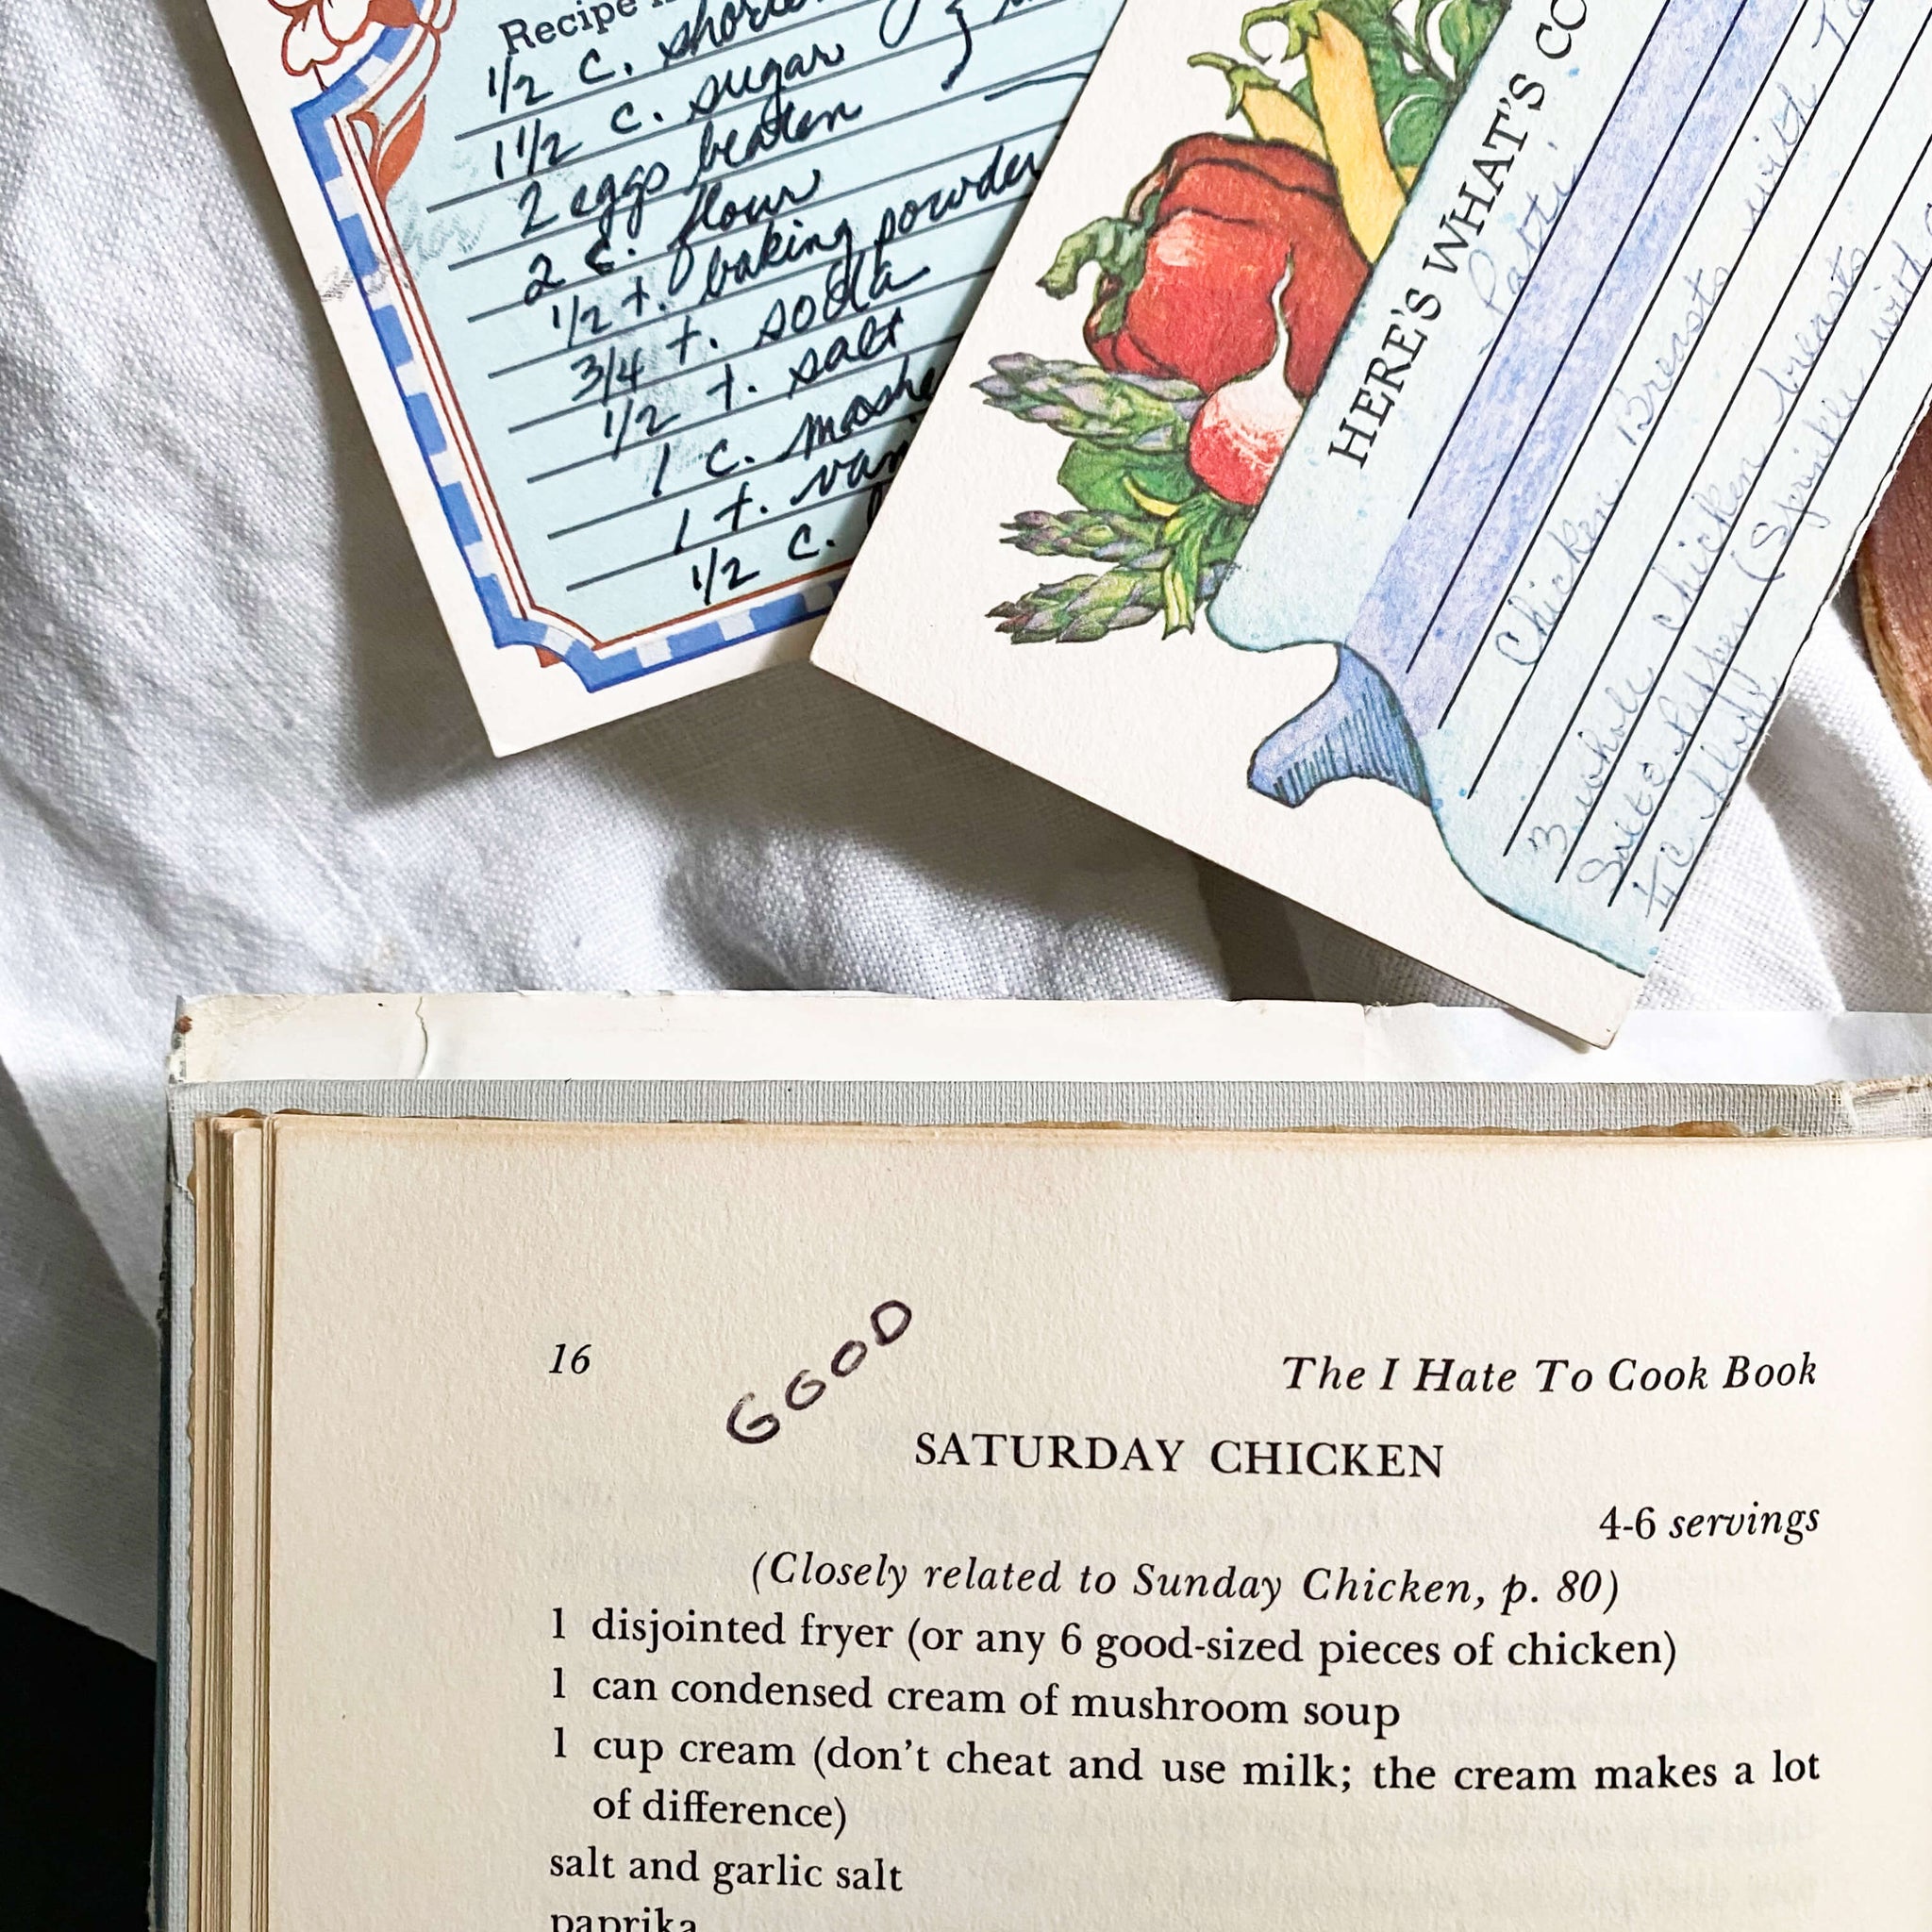 Recipe
1/2 c.
1 1/2 c. sugar
2 eggs beaten
2 c. flour
1/2 t. baking powder
3/4 t. soda
1/2 t. salt
1 c.
1 t.
1/2 c.
HERE'S WHAT'S
Patti
Chicken Breasts with
3 whole chicken breasts
Salt & Pepper (Sprinkle with
16
GOOD
The I Hate To Cook Book
SATURDAY CHICKEN
4-6 servings
(Closely related to Sunday Chicken, p. 80)
1 disjointed fryer (or any 6 good-sized pieces of chicken)
1 can condensed cream of mushroom soup
1 cup cream (don't cheat and use milk; the cream makes a lot
of difference)
salt and garlic salt
paprika